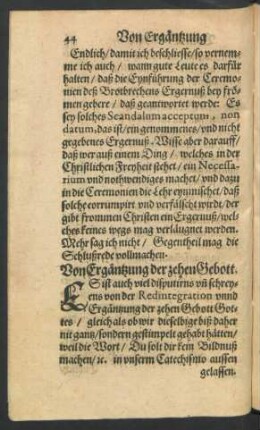 44 Von Ergäntzung
Endlich/ damit ich beschliesse/ so vernem-
me ich auch/ wann gute Leute es darfür
halten/ daß die Eynführung der Ceremo-
nien deß Brotbrechens Ergernuß bey frö-
men gebere/ daß geantwortet werde: Es
sey solches Scandalum acceptum, non
datum, das ist/ ein genommenes/ vnd nicht
gegebenes Ergernuß. Wisse aber darauff/
daß wer auß einem Ding/ welches in der
Christlichen Freyheit stehet/ ein Necessa-
rium vnd nothwendiges machet/ vnd dazu
in die Ceremonien die Lehr eynmischet/ daß
solche corrumpirt vnd verfälscht wirdt/ der
gibt frommen Christen ein Ergernuß/ wel-
ches keines wegs mag verläugnet werden.
Mehr sag ich nicht/ Gegentheil mag die
Schlußrede vollmachen.
Von Ergäntzung der zehen Gebott.
ES ist auch viel disputirns vñ schrey-
ens von der Redintegration vnnd
Ergäntzung der zehen Gebott Got-
tes/ gleich als ob wir dieselbige biß daher
nit gantz/ sondern gestümpelt gehabt hätten/
weil die Wort/ Du solt dir kein Bildnuß
machen/ ꝛc. in vnserm Catechismo aussen
gelassen.